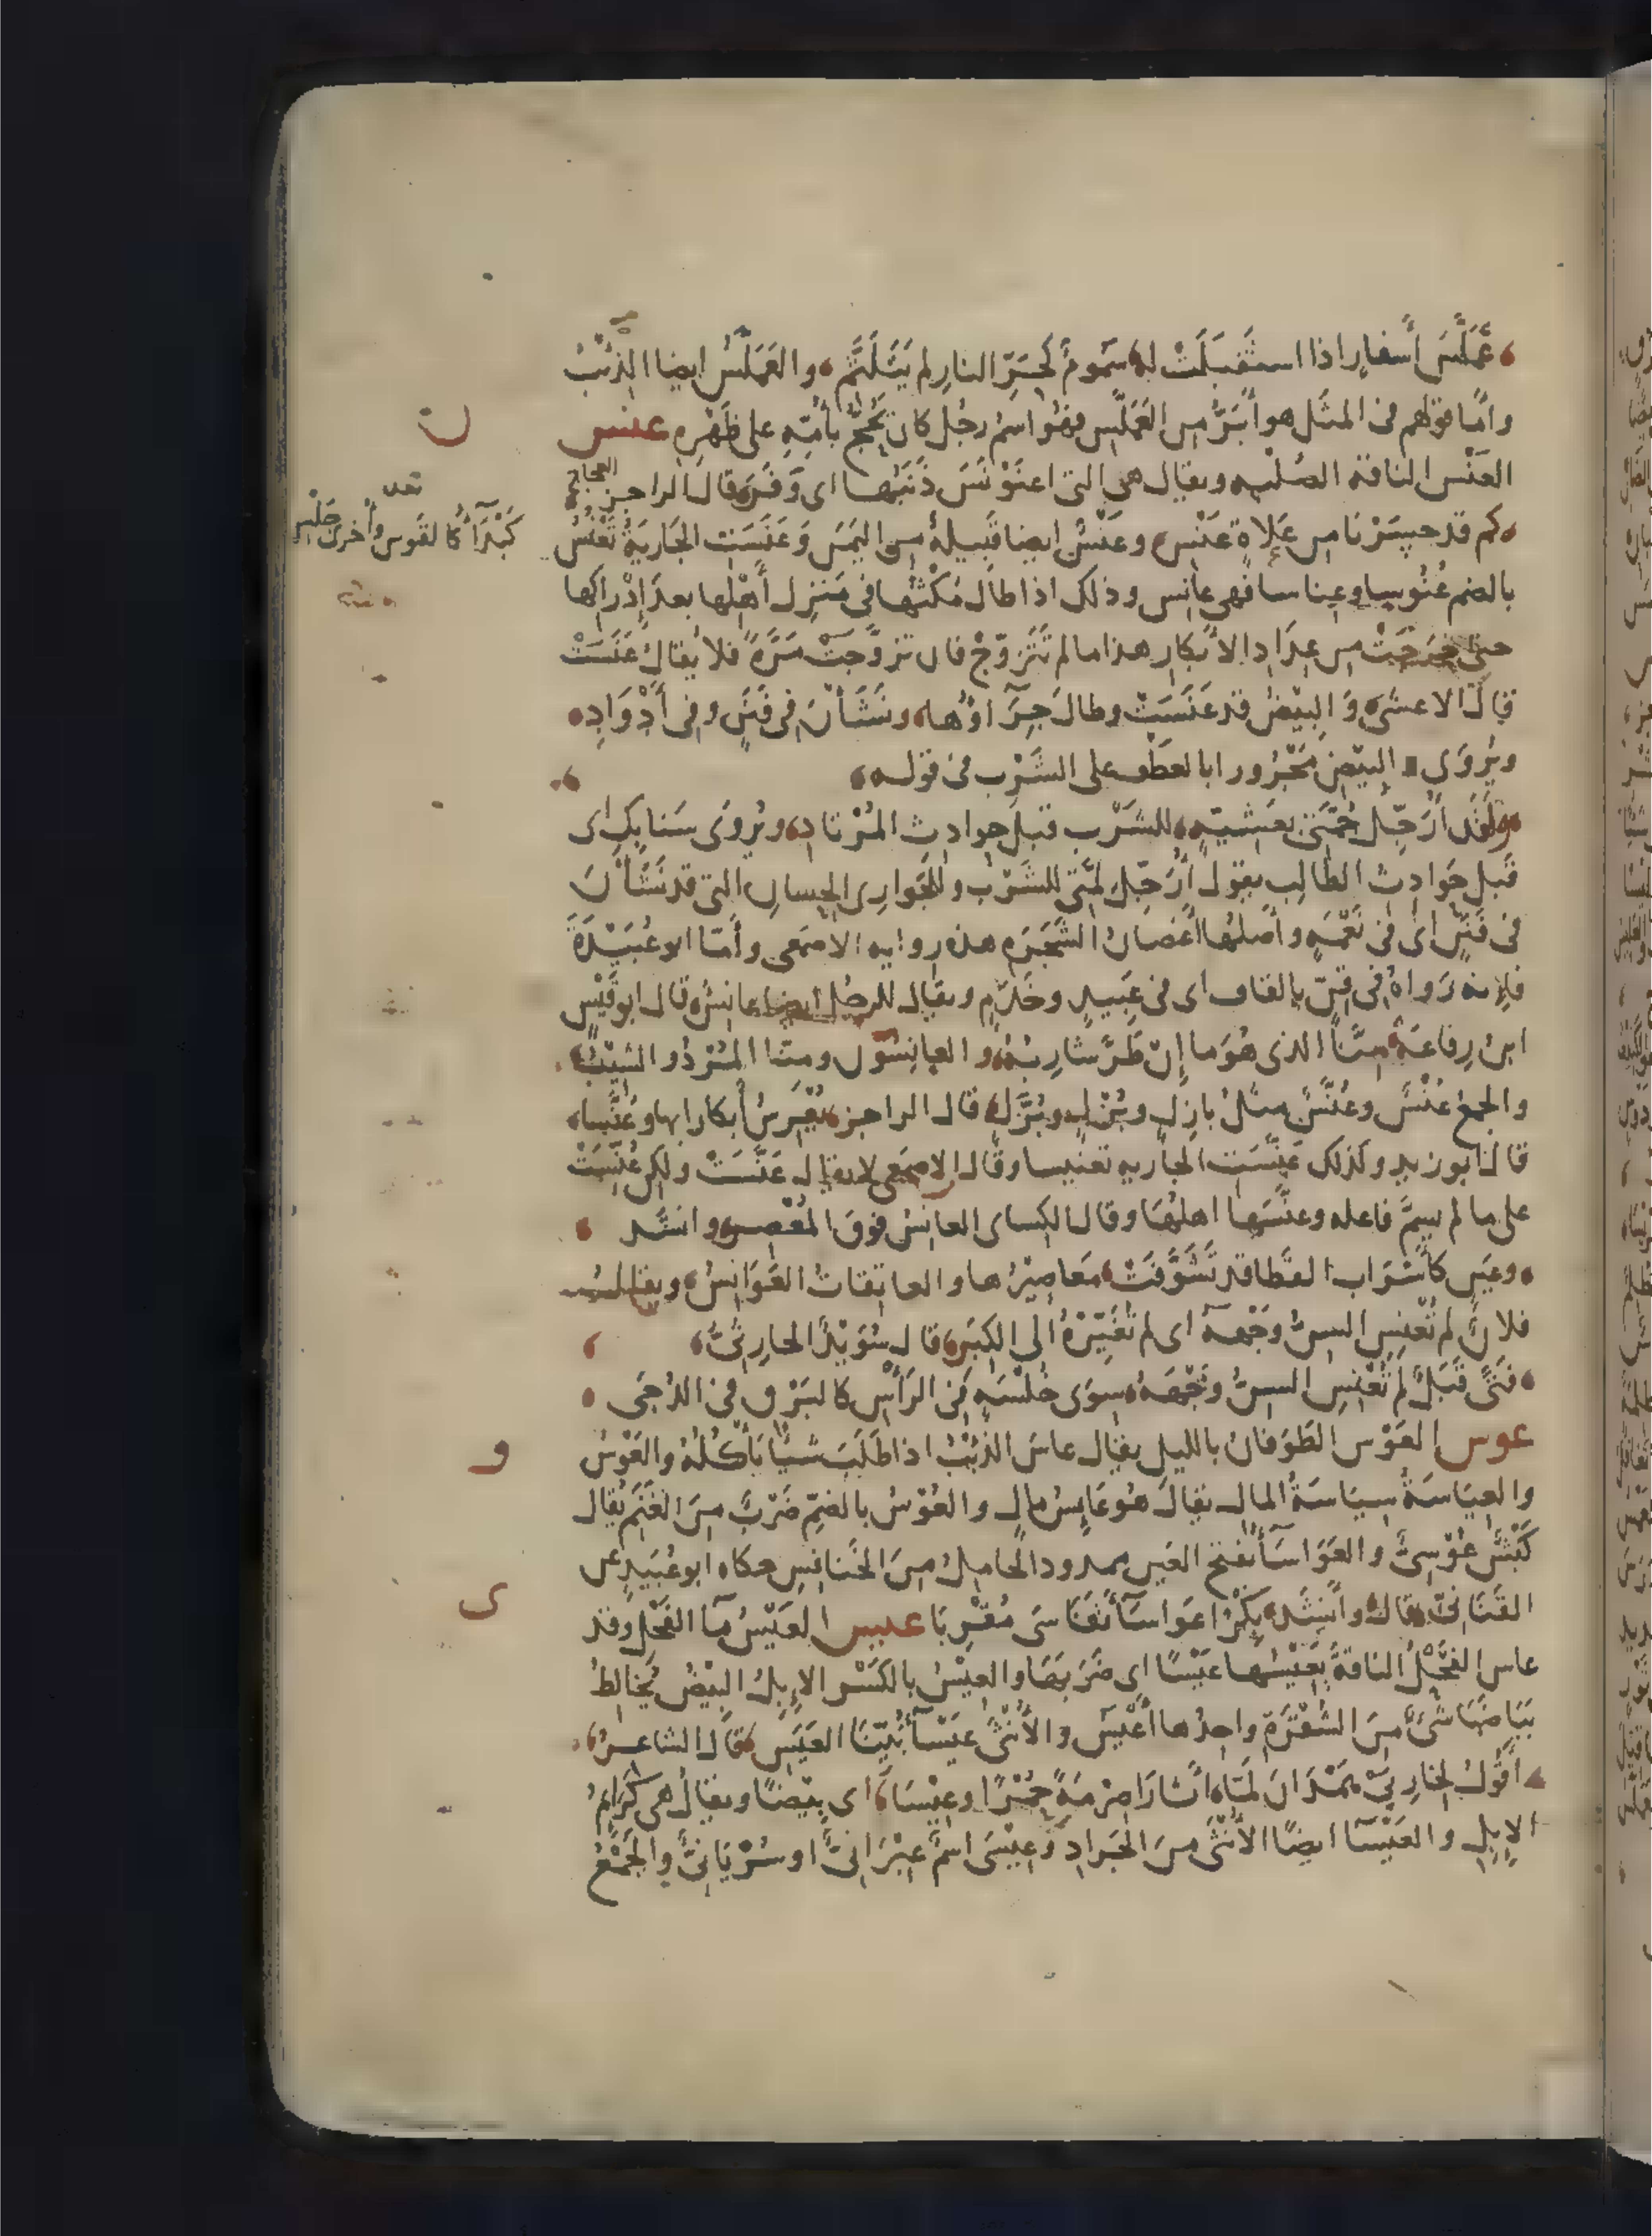 عَمَلَّسُ أَسفارٍ اذا استَقبَلَتْ له سَمُومٌ كَحَرِّ النارِ لم يَتَلَثَّمِ والعَمَلَّسُ ايضا الذِّئْبُ
وامّا قولهم فى المثَل هو أَبَرُّ من العَمَلَّس فهُو اسمُ رجُل كان يَحُجُّ بأُمّهِ على ظَهْرِه عنس
العَنْس الناقة الصُلْبه ويقال هى التى اعنَوْنَسَ ذَنَبُها اى وَفَرَ قال الراجز العجاج
كم قد حسَرْنا من عَلاةٍ عَنْسٍ وعَنْسٌ ايضا قَبيلةٌ من اليَمَن وَعَنَسَتِ الجَاريَةُ تَعْنُسُ
كَبْدَآءَ كالقَوس وأُخرى جَلْسِ
بالضم عُنُوسا وعِناسا فهى عانِس وذلك اذا طال مُكْثُها فى مَنزِل أَهْلها بعدَ إِدْراكِها
حتى خرَجَتْ من عِدَادِ الأبكارِ هذا ما لم تَتَزوّجْ فان تزوَّجَتْ مَرَّةً فلا يقالُ عَنَسَتْ
قال الاعشى وَالبِيْضُ قد عَنَسَتْ وطالَ جِرَآؤُها ونَشَأْنَ فى فَنَنٍ وفى أَذْوَادِ
ويُروَى والبيْضِ مَجْرُورا بالعَطْف على الشَرْب فى قوله
ولقَد أُرَجِّل جُمَّتى بعَشيّةٍ للشَرْبِ قبلَ حوادث المُرْتادِ ويُروَى سَنابِكِ اى
قبلَ حَوادِث الطالِب يقول أُرَجّل لِمَّتى للشَرْب وللجَوارى الحِسانِ التى قد نَشَأْنَ
فى فَنَنٍ اى فى نَعْمَهٍ وأصلها أَغصانُ الشَجَرَهِ هذه روايه الاصمَعى وأَمّا ابو عُبَيْدَةَ
فإنه رَواهُ فى قِنٍّ بالقاف اى فى عَبيدٍ وخَدَمٍ ويقال للرجُل ايضا عانِسٌ قال ابو قَيْس
ابنُ رِفاعَةَ مِنّا الذى هُوَ ما إِنْ طَرَّ شارِبُهُ والعانِسُونَ ومنّا المُرْدُ والشِّيْبُ
والجمعُ عُنْسٌ وعُنَّسٌ مثلُ بازِلٍ وبُزْلٍ وبُزَّلٍ قال الراجز يُعْرِسُ أَبكارا بها وعُنَّسا
قال ابو زيد وكذلك عَنَّسَت الجاريه تعنيسا وقال الاصمعى لا يقال عَنَّسَتْ ولكن عُنِّسَتْ
على ما لم يسمَّ فاعله وعنَّسَها اهلُها وقال الكسائ العانِسُ فوقَ المُعْصِر وانشد
وعِيسٍ كأَسْرَابِ القَطا قد تَشَوَّفَتْ مَعاصِيْرُها والعاتِقاتُ العَوَانِسُ ويقال
فلانٌ لم تُعْنِسِ السِنُّ وَجْهَهُ اى لم تُغَيِّرْهُ الى الكِبَرِ قال سُوَيْدٌ الحارِثىُّ
فَتًى قَبَلٌ لم تُعْنِسِ السِنُّ وَجْهَهُ سِوَى خُلْسَهٍ فى الرَأْسِ كالبَرْقِ فى الدُجَى
عوس العَوْس الطَوَفانُ بالليل يقال عاسَ الذئْبُ اذا طَلَبَ شيئًا يَأكُلُهُ والعَوْسُ
و
والعِيَاسَةُ سِيَاسَةُ المالِ يقالُ هُو عَايِسُ مالٍ والعُوْسُ بالضمّ ضَرْبٌ مِنَ الغَنَم يُقال
كَبْشٌ عُوْسِىٌّ والعَوَاسَآءُ بفتح العَين ممدود الحامِلُ مِنَ الخَنافِس حكاه ابو عُبَيدٍ عن
ى
القَنَانِىّ قال وأَنشَدَ بِكْرًا عَوَاسَآءَ تَفَاسَى مُقْرِبَا عيس العَيْسُ مَآءُ الفَحْلِ وقد
عاس الفَحْلُ الناقةَ يَعِيْسُها عَيْسًا اى ضَرَبَهَا والعِيْسُ بالكَسْر الإِبِلُ البِيْضُ يُخَالِطُ
بَيَاضَهَا شَىْءٌ مِنَ الشُقْرَةِ واحِدُها أَعْيَسُ والأُنْثَى عَيْسَآءُ بَيِّنَا العَيَسِ قال الشاعرُ
أَقُولُ لِخَارِبَىْ هَمْدَانَ لَمَّا أَثَارَا صِرْمَةً حُمْرًا وعِيْسَا اى بِيْضًا ويقالُ هى كَرَايِمُ
الإِبِلِ والعَيْسَآءُ ايضًا الأُنْثَى مِنَ الجَرَادِ وَعِيْسَى اسمٌ عِبْرَانىٌّ او سُرْيَانىٌّ والجَمْعُ